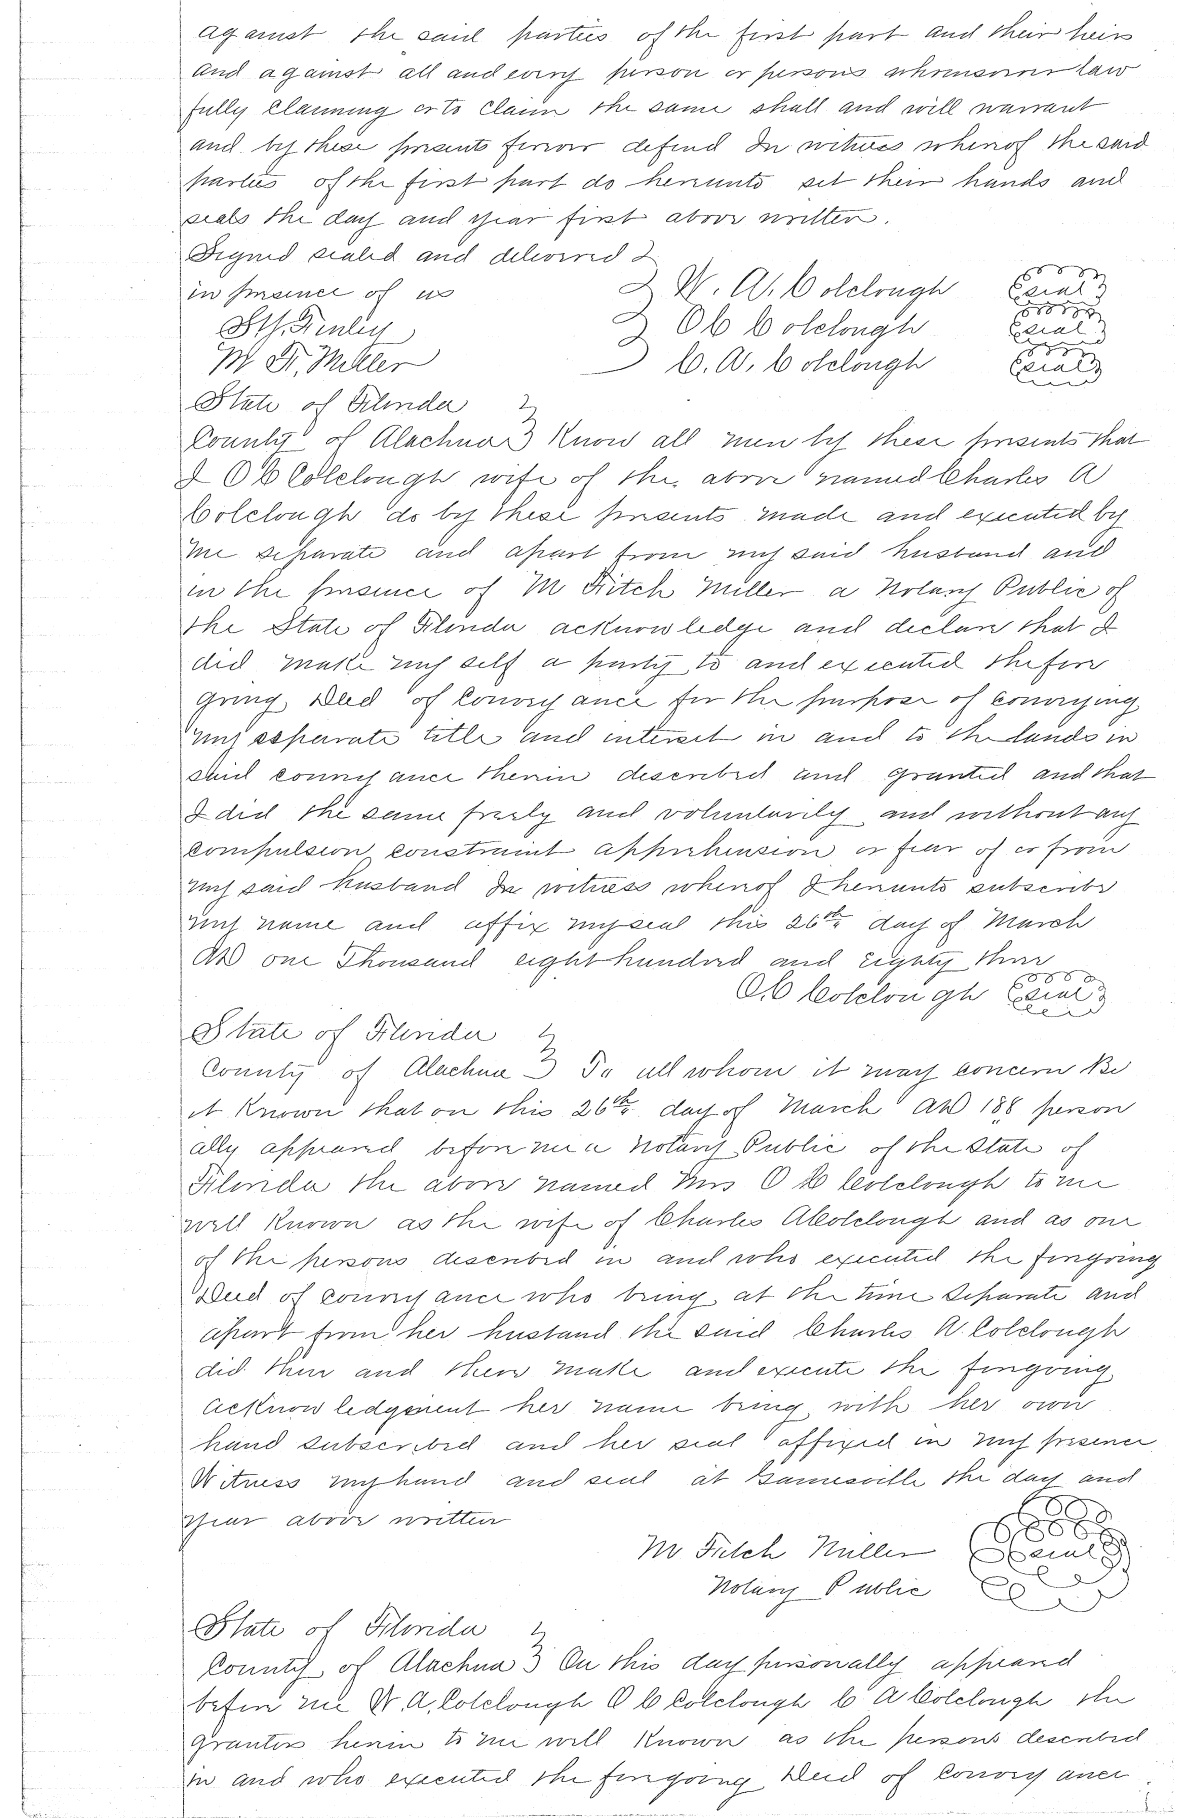 against the said parties of the first part and their heirs
and against all and every person or persons whomsoever law
fully claiming or to claim the same shall and will warrant
and by these presents forever defend In witness whereof the said
parties of the first part do hereunto set their hands and
seals the day and year first above written.
Signed sealed and delivered
in presence of us W. A. Colclough seal
St. Finley O C Colclough seal
M F. Miller C. A. Colclough seal
State of Florida
County of Alachua Know all men by these presents that
I O C Colclough wife of the above named Charles A
Colclough do by these presents made and executed by
me separate and apart from my said husband and
in the presence of M Fitch Miller a Notary Public of
the State of Florida acknowledge and declare that I
did make my self a party to and executed the fore
going Deed of Convey ance for the purpose of conveying
my separate title and interest in and to the lands in
said convey ance therein described and granted and that
I did the same freely and voluntarily and without any
compulsion constraint apprehension or fear of or from
my said husband In witness whereof I hereunto subscribe
my name and affix my seal this 26th day of March
AD one Thousand eight hundred and Eighty three
O.C Colclough seal
State of Florida
County of Alachua To all whom it may concern Be
it Known that on this 26th day of March AD 188 person
ally appeared before me a Notary Public of the State of
Florida the above named Mrs O C Colclough to me
well Known as the wife of Charles A Colclough and as one
of the persons described in and who executed the foregoing
Deed of convey ance who being at the time Separate and
apart from her husband the said Charles A. Colclough
did then and there make and execute the foregoing
acknow ledgment her name being with her own
hand subscribed and her seal affixed in my presence
Witness my hand and seal at Gainesville the day and
year above written
M Fitch Miller seal
Notary Public
State of Florida
County of Alachua On this day personally appeared
before me W. A. Colclough O C Colclough C A Colclough the
grantors herein to me well Known as the persons described
in and who executed the foregoing Deed of Convey ance